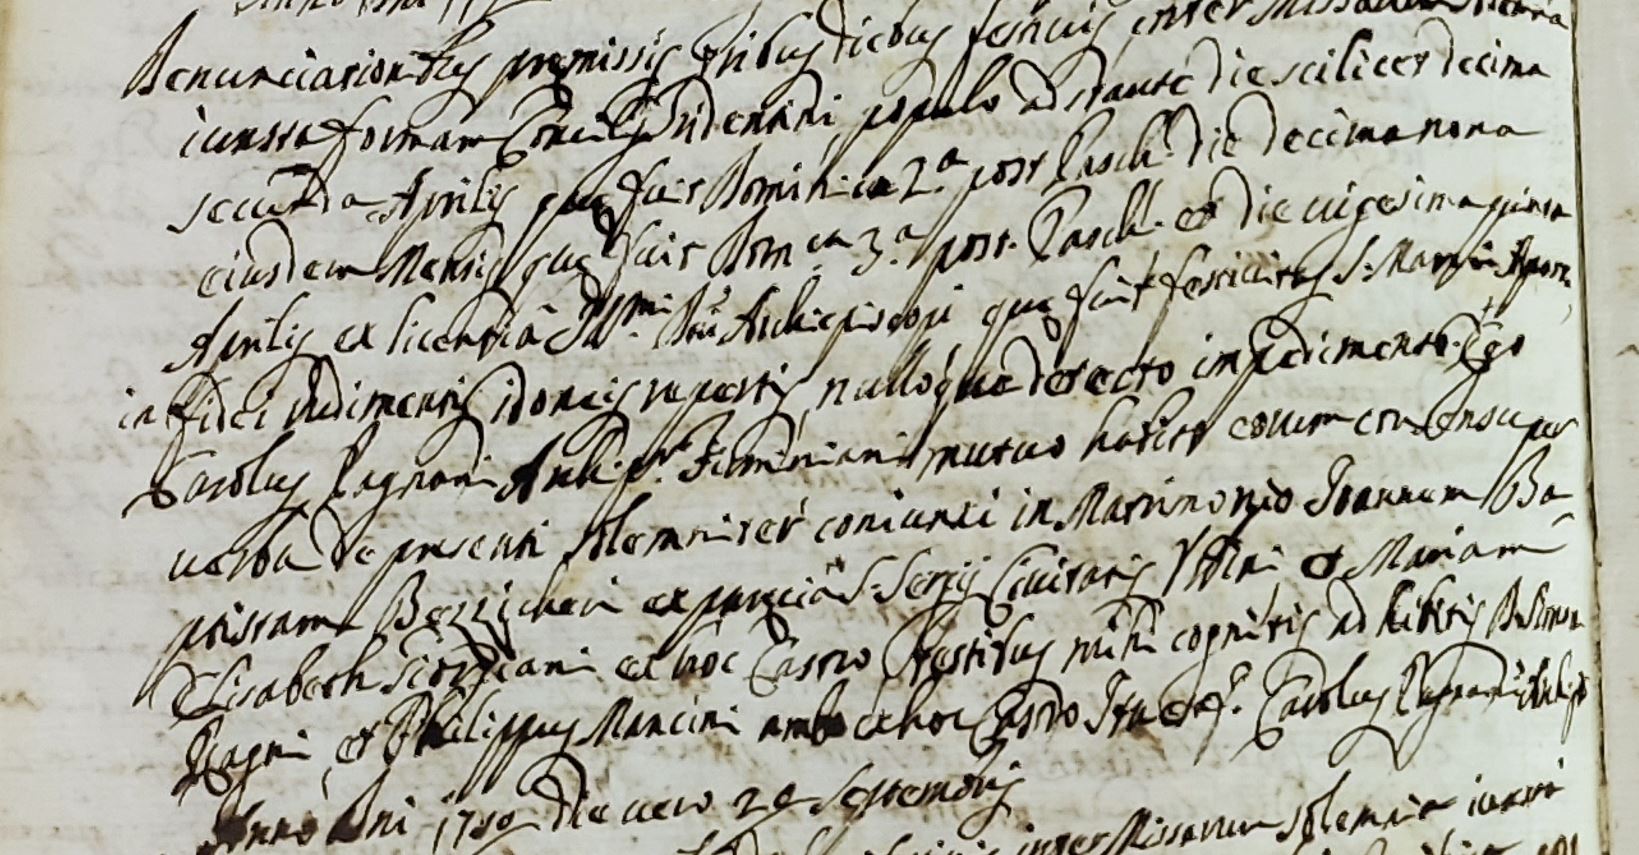 Denunciationibus premissis tribus diebus festiuis inter Missarum
iuxta formam Concilij Tridentini, populo adstante die scilicet decima
secunda Aprilis que fuit Dominica 2.a post Pasch. die decimanona
eiusdem Mensis que fuit Dom.ca 3.a post. Pasch. et die uigesima quinta
Aprilis ex licentia Ill.mi Archiepiscopi, que fuit festiuitas S. Marci
in fidei rudimentis idoneis repertis, nulloque detecto impedimento. Ego
Carolus Pagnani mutuo habito eorum consensu per
uerba de presenti solemniter coniunxi in Matrimonio Ioannem Ba-
ptistam ex parecia S. Sergij Ciuitatis et Mariam
Elisabeth ex hoc Castro testibus mihi cognitis adhibitis
et Philippus Mancini ambo ex hoc Castro Ita est. Carolus Pagnani
Anno Dni die uero Septembris
inter Missarum solemnia iuxta